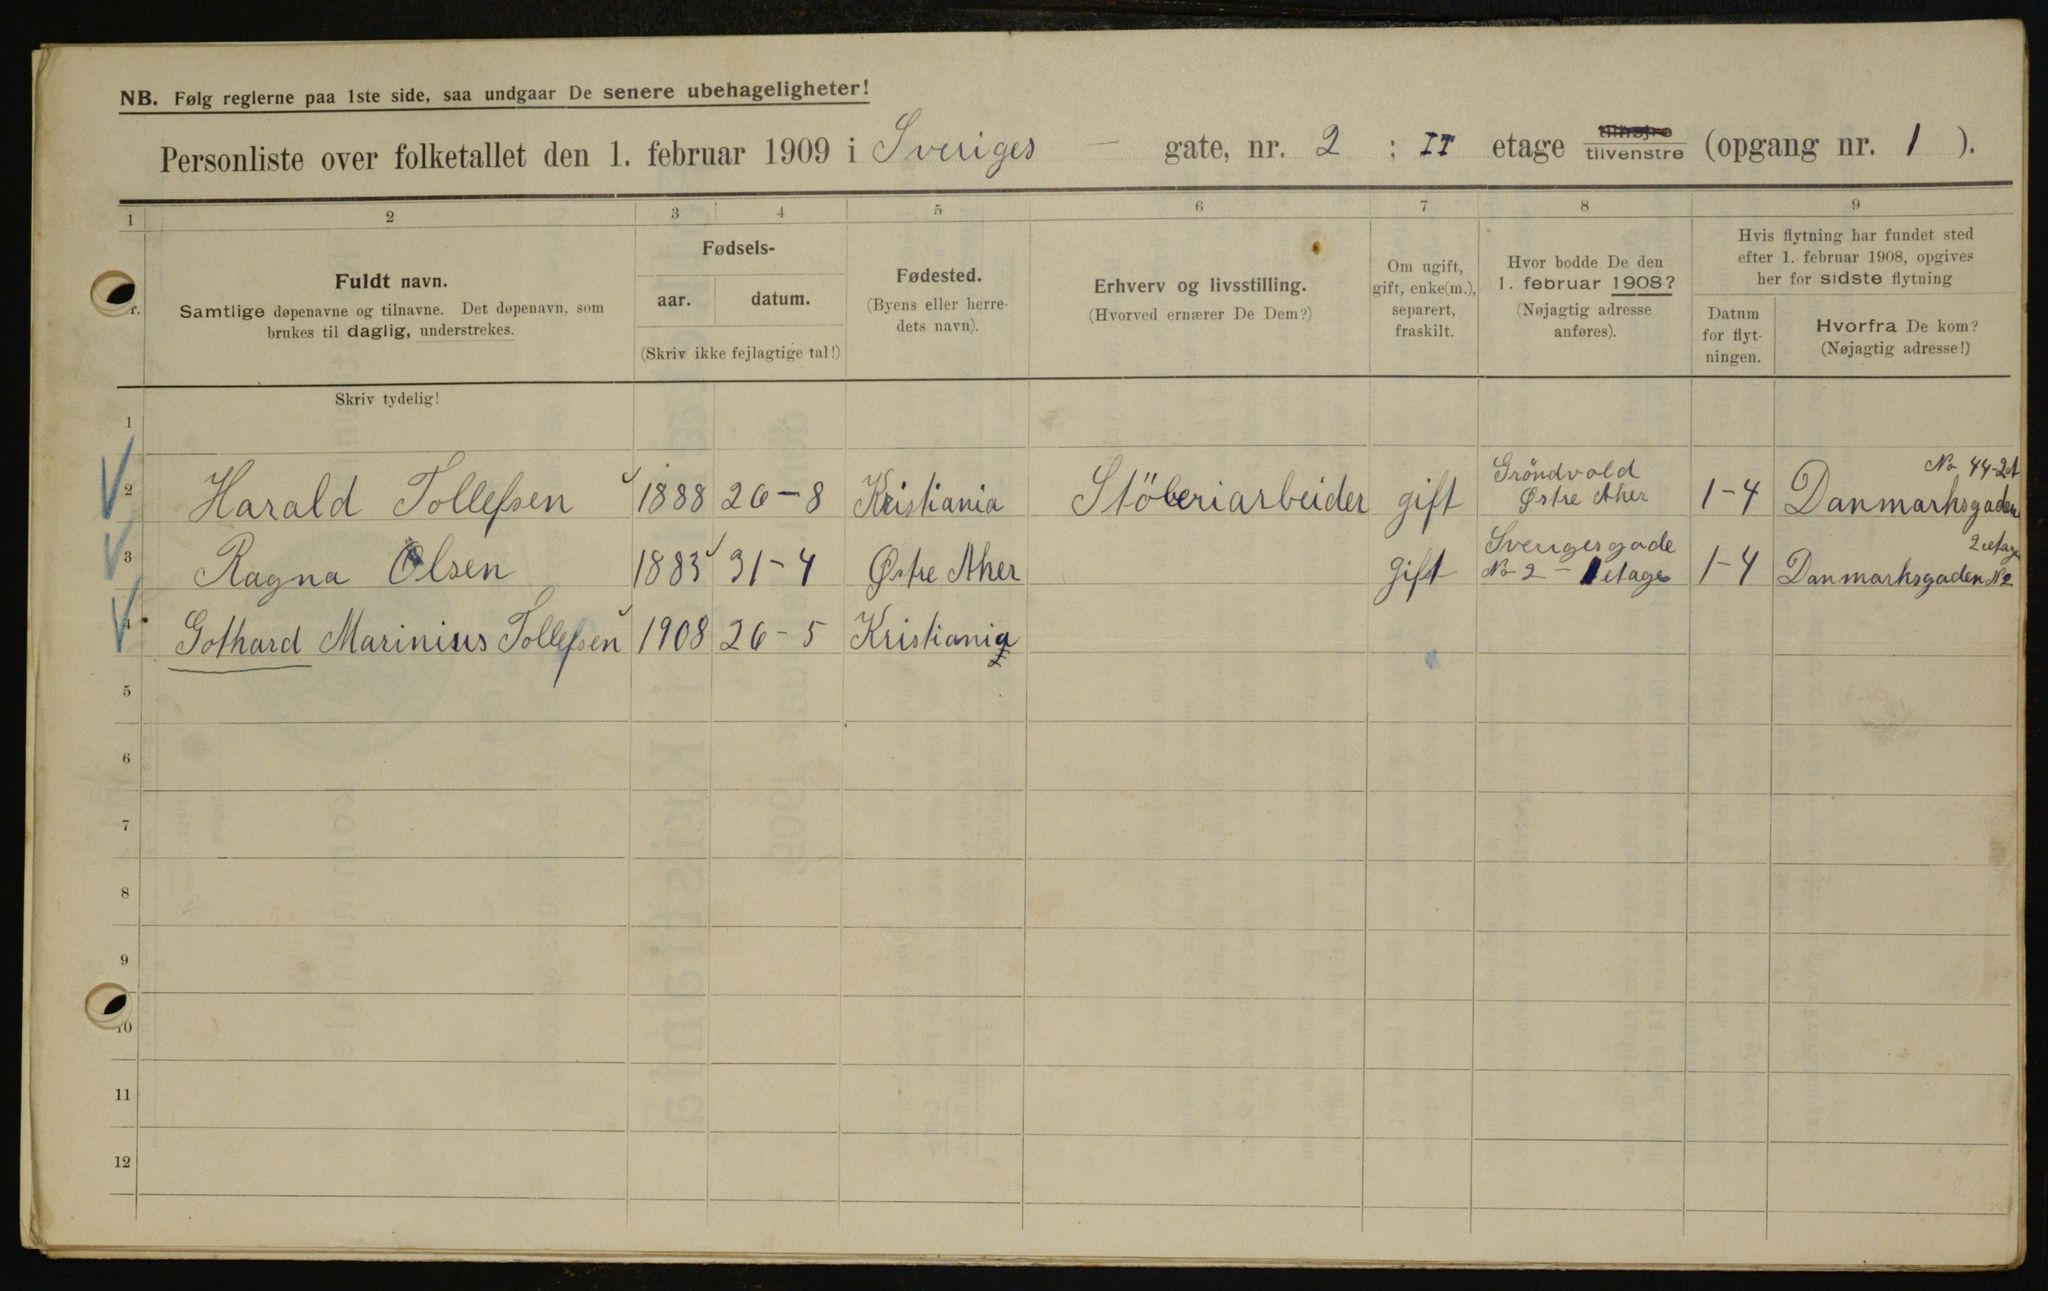 NB. Følg reglerne paa 1ste side, saa undgaar De senere ubehageligheter!
Personliste over folketallet den 1. februar 1909 i Sveriges - gate, nr. 2 ; II etage tilhøjre tilvenstre (opgang nr. 1 ).
1 2 3 4 5 6 7 8 9
Fuldt navn.
Samtlige døpenavne og tilnavne. Det døpenavn, som
brukes til daglig, understrekes.
Skriv tydelig!
Fødsels-
aar. datum.
(Skriv ikke fejlagtige tal!)
Fødested.
(Byens eller herre-
dets navn).
Erhverv og livsstilling.
(Hvorved ernærer De Dem?)
Om ugift,
gift, enke(m.),
separert,
fraskilt.
Hvor bodde De den
1. februar 1908?
(Nøjagtig adresse
anføres).
Hvis flytning har fundet sted
efter 1. februar 1908, opgives
her for sidste flytning
Datum
for flyt-
ningen.
Hvorfra De kom?
(Nøjagtig adresse!)
1
2 Harald Tollefsen 1888 26-8 Kristiania Stöberiarbeider gift Gröndvold Østre Aker 1-4 Danmarksgaden No 44-2et
3 Ragna Olsen 1883 31-4 Østre Aker gift Sverigesgade No 2 - 1 etage 1-4 Danmarksgaden No 2 2 etage
4 Gothard Marinius Tollefsen 1908 26-5 Kristiania
5
6
7
8
9
10
11
12